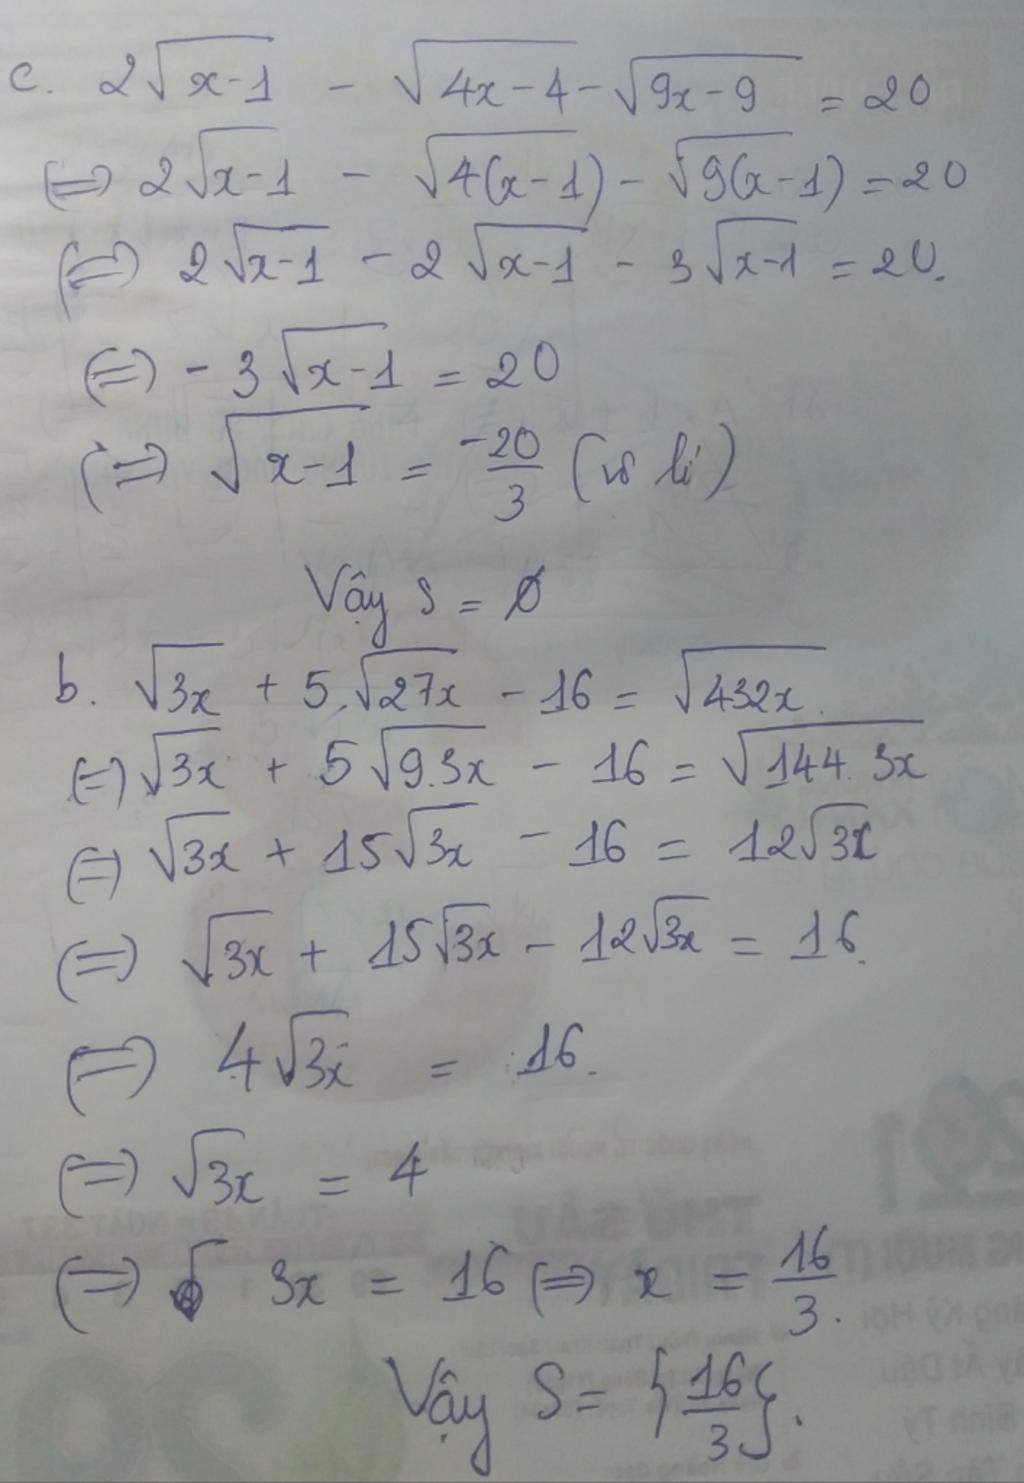 c. 2√(x-1) - √(4x-4) - √(9x-9) = 20
(=) 2√(x-1) - √(4(x-1)) - √(9(x-1)) = 20
(=) 2√(x-1) - 2√(x-1) - 3√(x-1) = 20.
(=) -3√(x-1) = 20
(=) √(x-1) = -20/3 (vô lí)
Vậy S = Ø
b. √(3x) + 5.√(27x) - 16 = √(432x).
(=) √(3x) + 5√(9.3x) - 16 = √(144.3x)
(=) √(3x) + 15√(3x) - 16 = 12√(3x)
(=) √(3x) + 15√(3x) - 12√(3x) = 16.
(=) 4√(3x) = 16.
(=) √(3x) = 4
(=) 3x = 16 (=) x = 16/3.
Vậy S = {16/3}.
201
THỨ SÁU